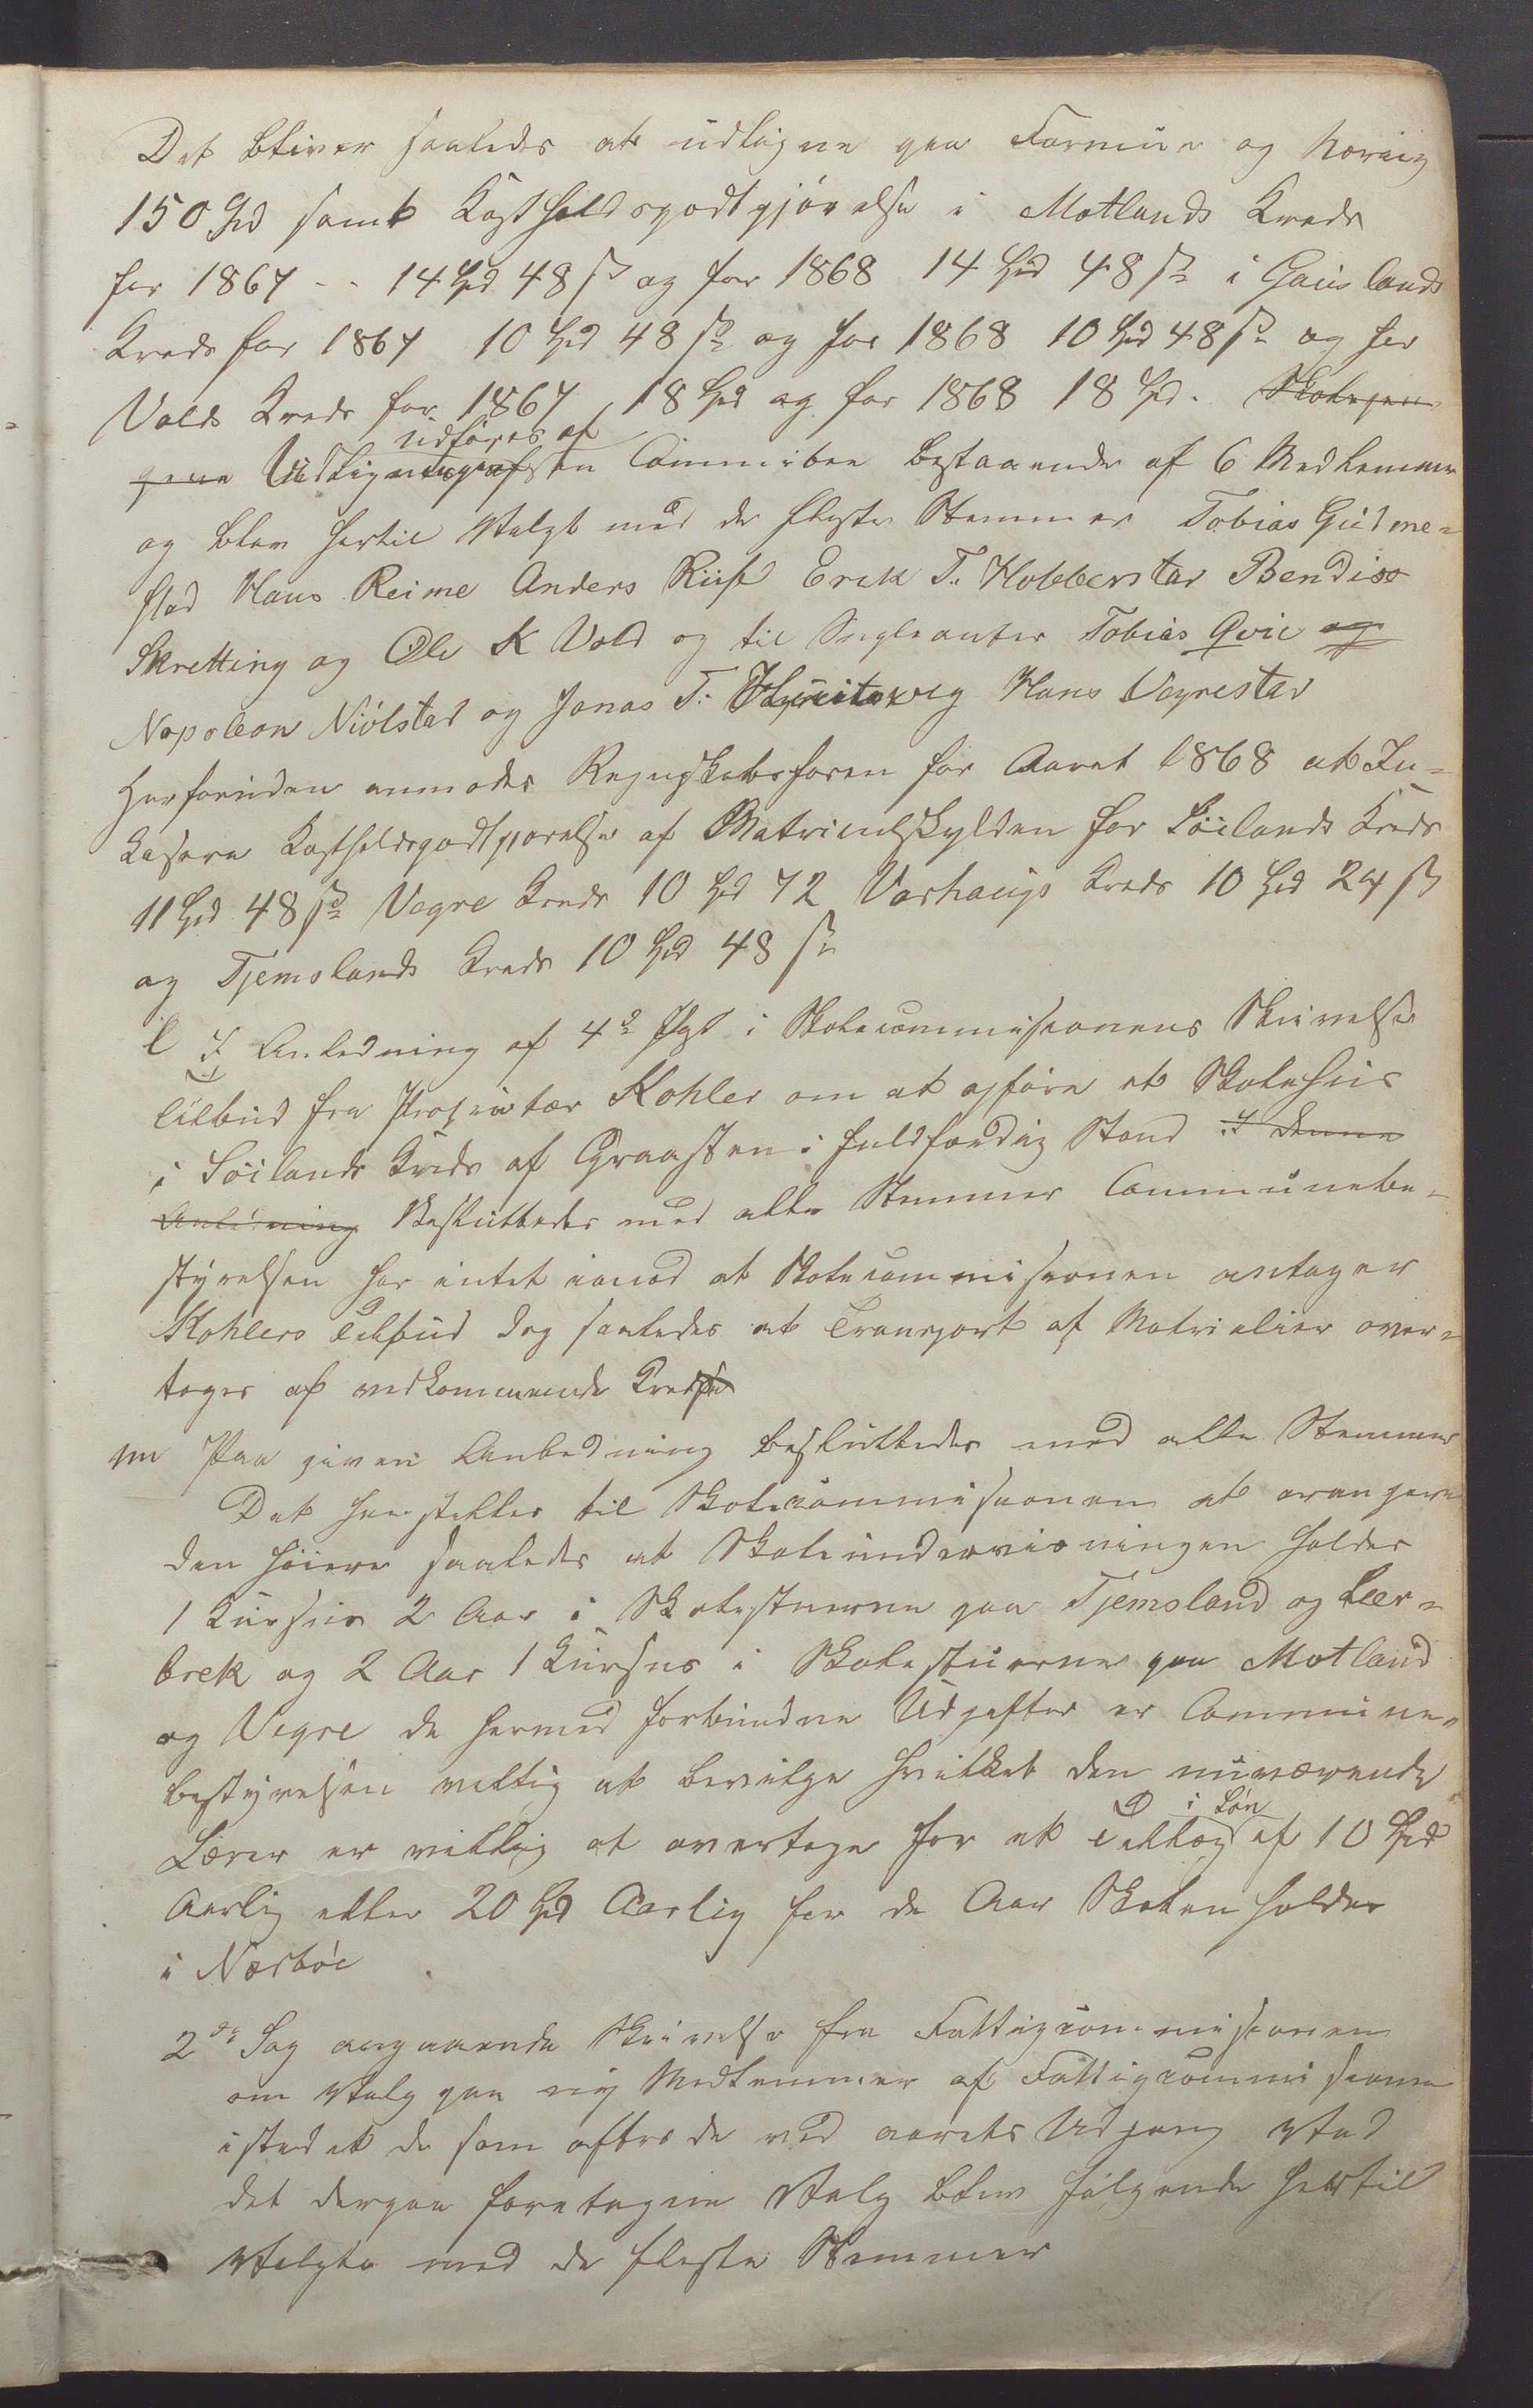 Det bliver saaledes at udligne paa Formue og Næring
150 Spd samt Kostholdsgodtgjørelse i Motlands Kreds
for 1867 - - 14 Spd 48 s og for 1868 14 Spd 48 s i Gauslands
Kreds for 1867 10 Spd 48 s og for 1868 10 Spd 48 s og for
Volds Kreds for 1867 18 Spd og for 1868 18 Spd. Skolepen
gene Udligningen udføres af en Committee bestaaende af 6 Medlemmer
og blev hertil Valgt med de fleste Stemmer Tobias Gudme-
stad Hans Reime Anders Riise Erek T. Hobberstad Bendix
Skretting og Ole K Vold og til Supleanter Tobias Qvie og
Napoleon Niólstad og Jonas T. Hans Vegrestad
Herforuden anmodes Regnskabsføren for Aaret 1868 at In-
kasere Kostholdsgodtgjørelse af Matriculskylden for Søilands Kreds
11 Spd 48 s Vegre Kreds 10 Spd 72 Varhaugs Kreds 10 Spd 24 s
og Tjemslands Kreds 10 Spd 48 s
l I Anledning af 4de Post i Skolecommisionens Skrivelse
Tilbud fra Proprietær Kohler om at opføre et Skolehus
i Søilands Kreds af Graasten i fuldfærdig Stand I denne
Anledning Besluttedes med alle Stemmer Communebe-
styrelsen har intet imod at Skolecommisionen antager
Kohlers Tilbud dog saaledes at Transport af Matrialier over-
tages af vedkommende Kreds
m Paa given Anledning besluttedes med alle Stemmer
Det henstilles til Skolecommisionen at arangere
den høiere saaledes at Skoleundervisningen holdes
1 Kursus 2 Aar i Skolestuerne paa Tjemsland og Lær-
brek og 2 Aar 1 Kursus i Skolestuerne paa Motland
og Vegre de hermed forbundne Udgifter er Commune-
bestyrelsen villig at bevilge hvilket den nuværende
Lærer er villig at overtage for et Tillæg i Løn af 10 Spd
Aarlig eller 20 Spd Aarlig for de Aar Skolen holdes
i Nærbøe
2de Sag angaaende Skrivelse fra Fattigcommisionen
om Valg paa ny Medlemmer af Fattigcommisionen
istedet de som aftræde ved aarets Udgang Ved
det derpaa foretagne Valg blev følgende hertil
Valgte med de fleste Stemmer